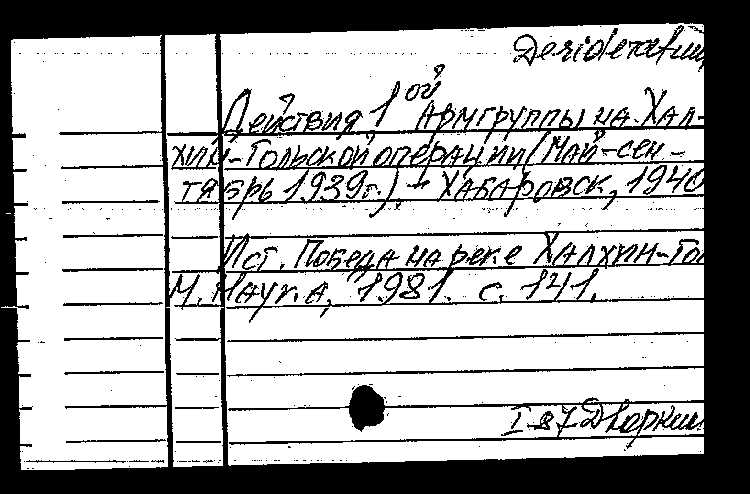 Desideratum
Действия 1ой Армгруппы на Хал-
хин-Гольской операции (Май-сен-
тябрь 1939г.). - Хабаровск, 1940
Ист. Победа на реке Халхин-Гол
М. Наука, 1981. с. 141.
I-87 Дворкин